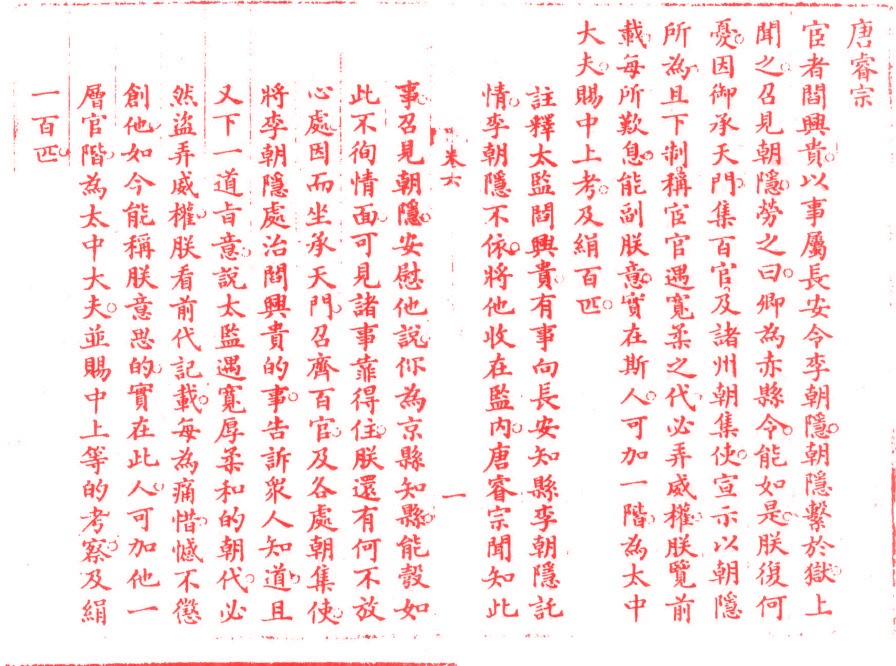 唐睿宗
宦者閻興貴以事屬長安令李朝隱朝隱繫於獄上
聞之召見朝隱勞之曰卿為赤縣令能如是朕復何
憂因御承天門集百官及諸州朝集使宣示以朝隱
所為且下制稱宦官遇寬柔之代必弄威權朕覽前
載每所歎息能副朕意實在斯人可加一階為太中
大夫賜中上考及絹百匹
註釋太監閻興貴有事向長安知縣李朝隱託
情李朝隱不依將他收在監內唐睿宗聞知此
卷六
一
事召見朝隱安慰他說你為京縣知縣能彀如
此不徇情面可見諸事靠得住朕還有何不放
心處因而坐承天門召齊百官及各處朝集使
將李朝隱處治閻興貴的事告訴衆人知道且
又下一道旨意說太監遇寬厚柔和的朝代必
然盜弄威權朕看前代記載每為痛惜憾不懲
創他如今能稱朕意思的實在此人可加他一
層官階為太中大夫並賜中上等的考察及絹
一百匹